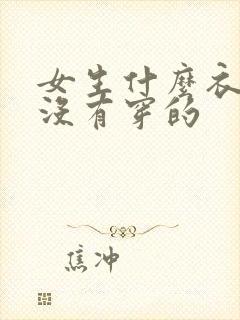 女生什麼衣
沒有穿的
焦冲